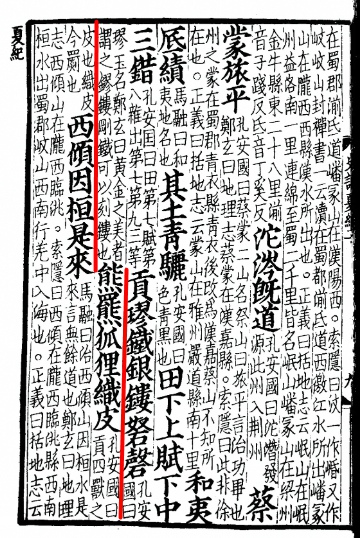 在蜀郡湔氐道嶓冢山在漢陽西。索隱曰汶一作㟭又作
岐岐山封禪書一云瀆山在蜀郡湔氐道西徼江水所出嶓冢
山在隴西西縣漢水所出也。正義曰括地志云岷山在岷
州益洛南一里連綿至蜀二千里皆名岷山嶓冢山在梁州
金牛縣東二十八里湔
音子踐反氐音丁奚反
沱涔既道
孔安國曰沱潛發
源此州入荊州
蔡
蒙旅平
孔安國曰蔡蒙二山名祭山曰旅平言治功畢也
鄭玄曰地理志蔡蒙在漢嘉縣。索隱曰此非徐
州之蒙在蜀郡青衣縣青衣後改爲漢嘉蔡山不知所
在也。正義曰括地志云蒙山在雅州嚴道縣南十里
和夷
厎績
馬融曰和
夷地名也
其土青驪
孔安國曰
色青黑也
田下上賦下中
三錯
孔安國曰田第七賦第
八雜出第七第九三等
貢璆鐵銀鏤砮磬
孔安
國曰
璆玉名鄭玄曰黃金之美者
謂之鏐鏤剛鐵可以刻鏤也
熊羆狐狸織皮
孔安國曰
貢四獸之
皮也織皮
今罽也
西傾因桓是來
馬融曰治西傾山因桓水是
來言無餘道也鄭玄曰地理
志西傾山在隴西臨洮。索隱曰西傾在隴西臨洮縣西南
桓水出蜀郡岷山西南行羌中入海也。正義曰括地志云
夏紀